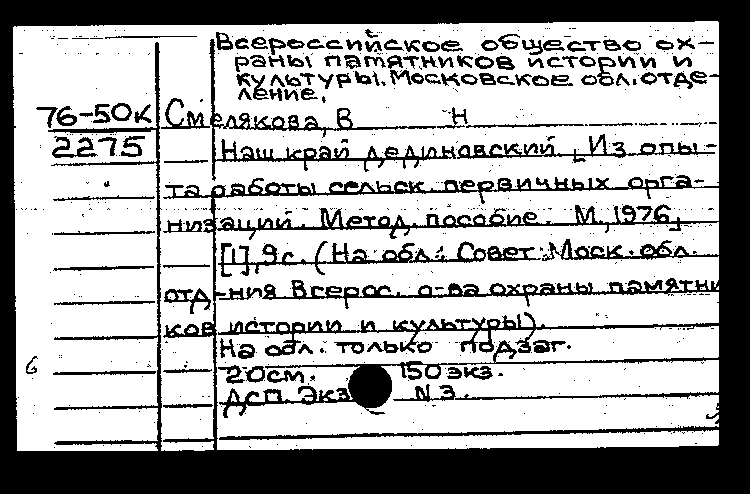 Всероссийское общество ох-
раны памятников истории и
культуры. Московское обл. отде-
ление.
76-50к Смелякова, В Н
2275 Наш край дединовский [Из опы-
та работы сельск. первичных орга-
низаций. Метод. пособие. М., 1976]
[1], 9 с. (На обл.: Совет Моск. обл.
отд-ния Всерос. о-ва охраны памятни
ков истории и культуры).
На обл. только подзаг.
6 20см. 150 экз.
ДСП. Экз N 3.